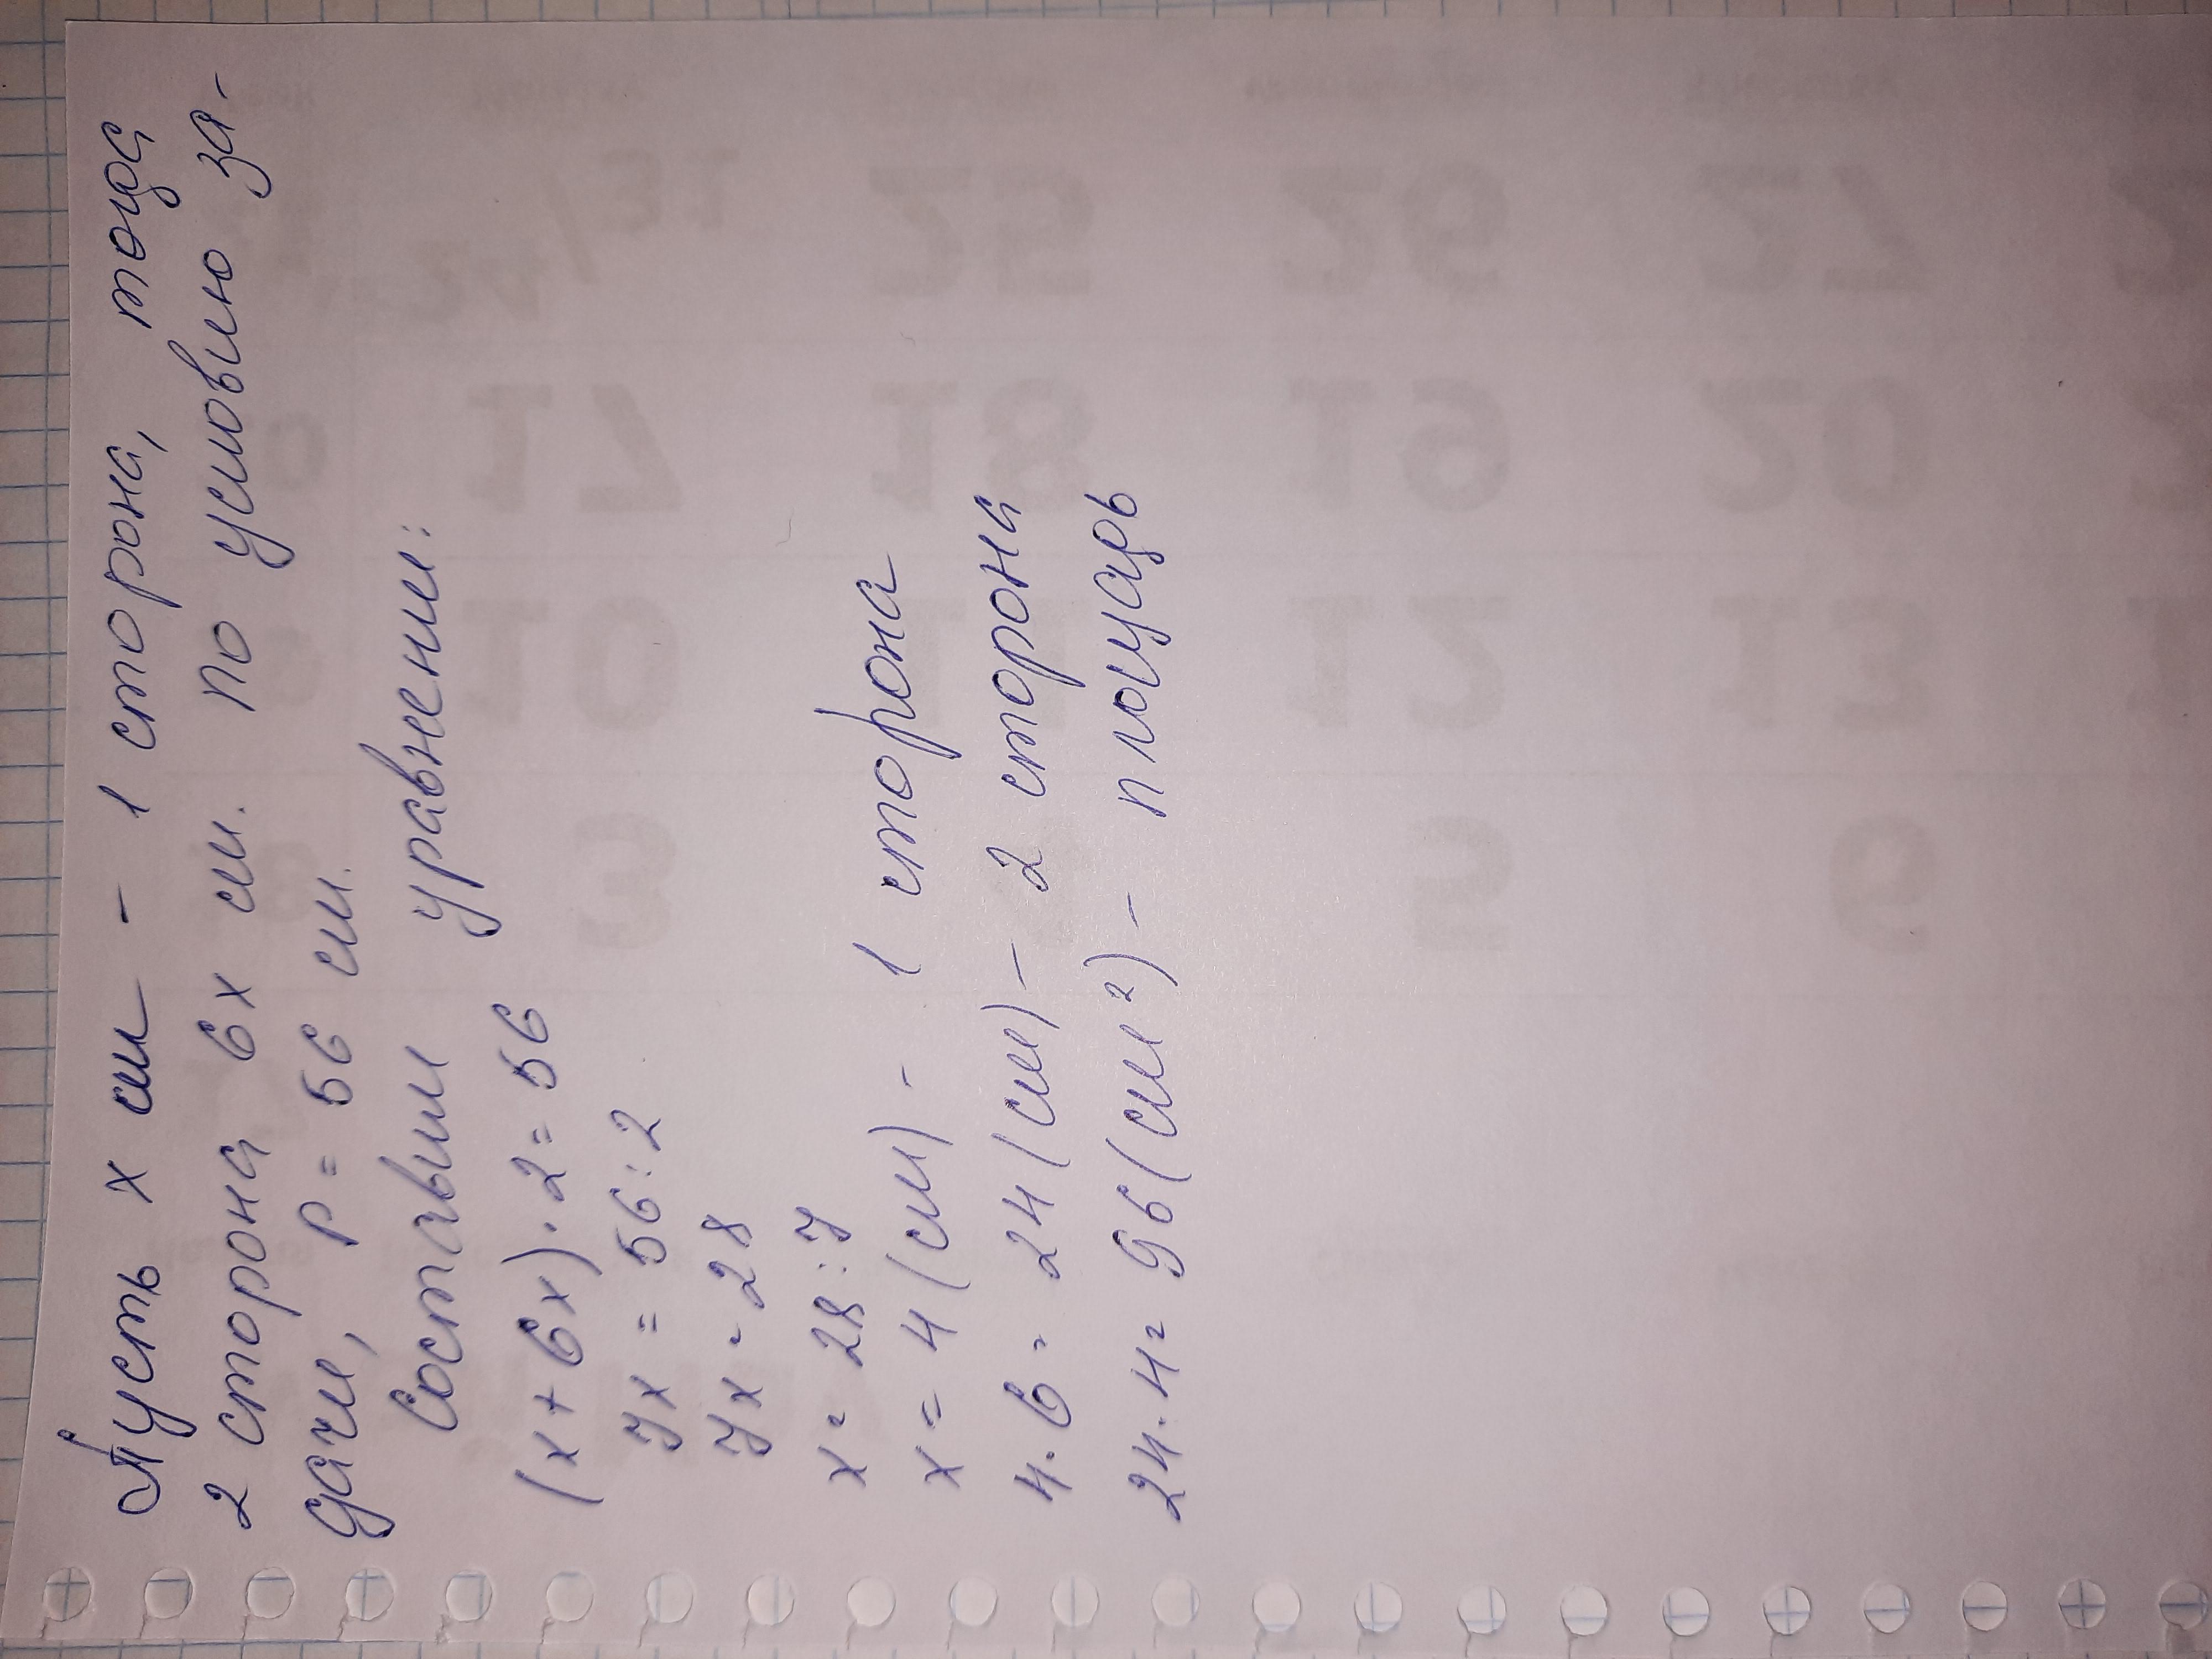 Пусть x см - 1 сторона, тогда
2 сторона 6x см. По условию за-
дачи, P = 56 см.
Составим уравнении:
(x + 6x) · 2 = 56
7x = 56 : 2
7x = 28
x = 28 : 7
x = 4 (см) - 1 сторона
4 · 6 = 24 (см) - 2 сторона
24 · 4 = 96 (см²) - площадь